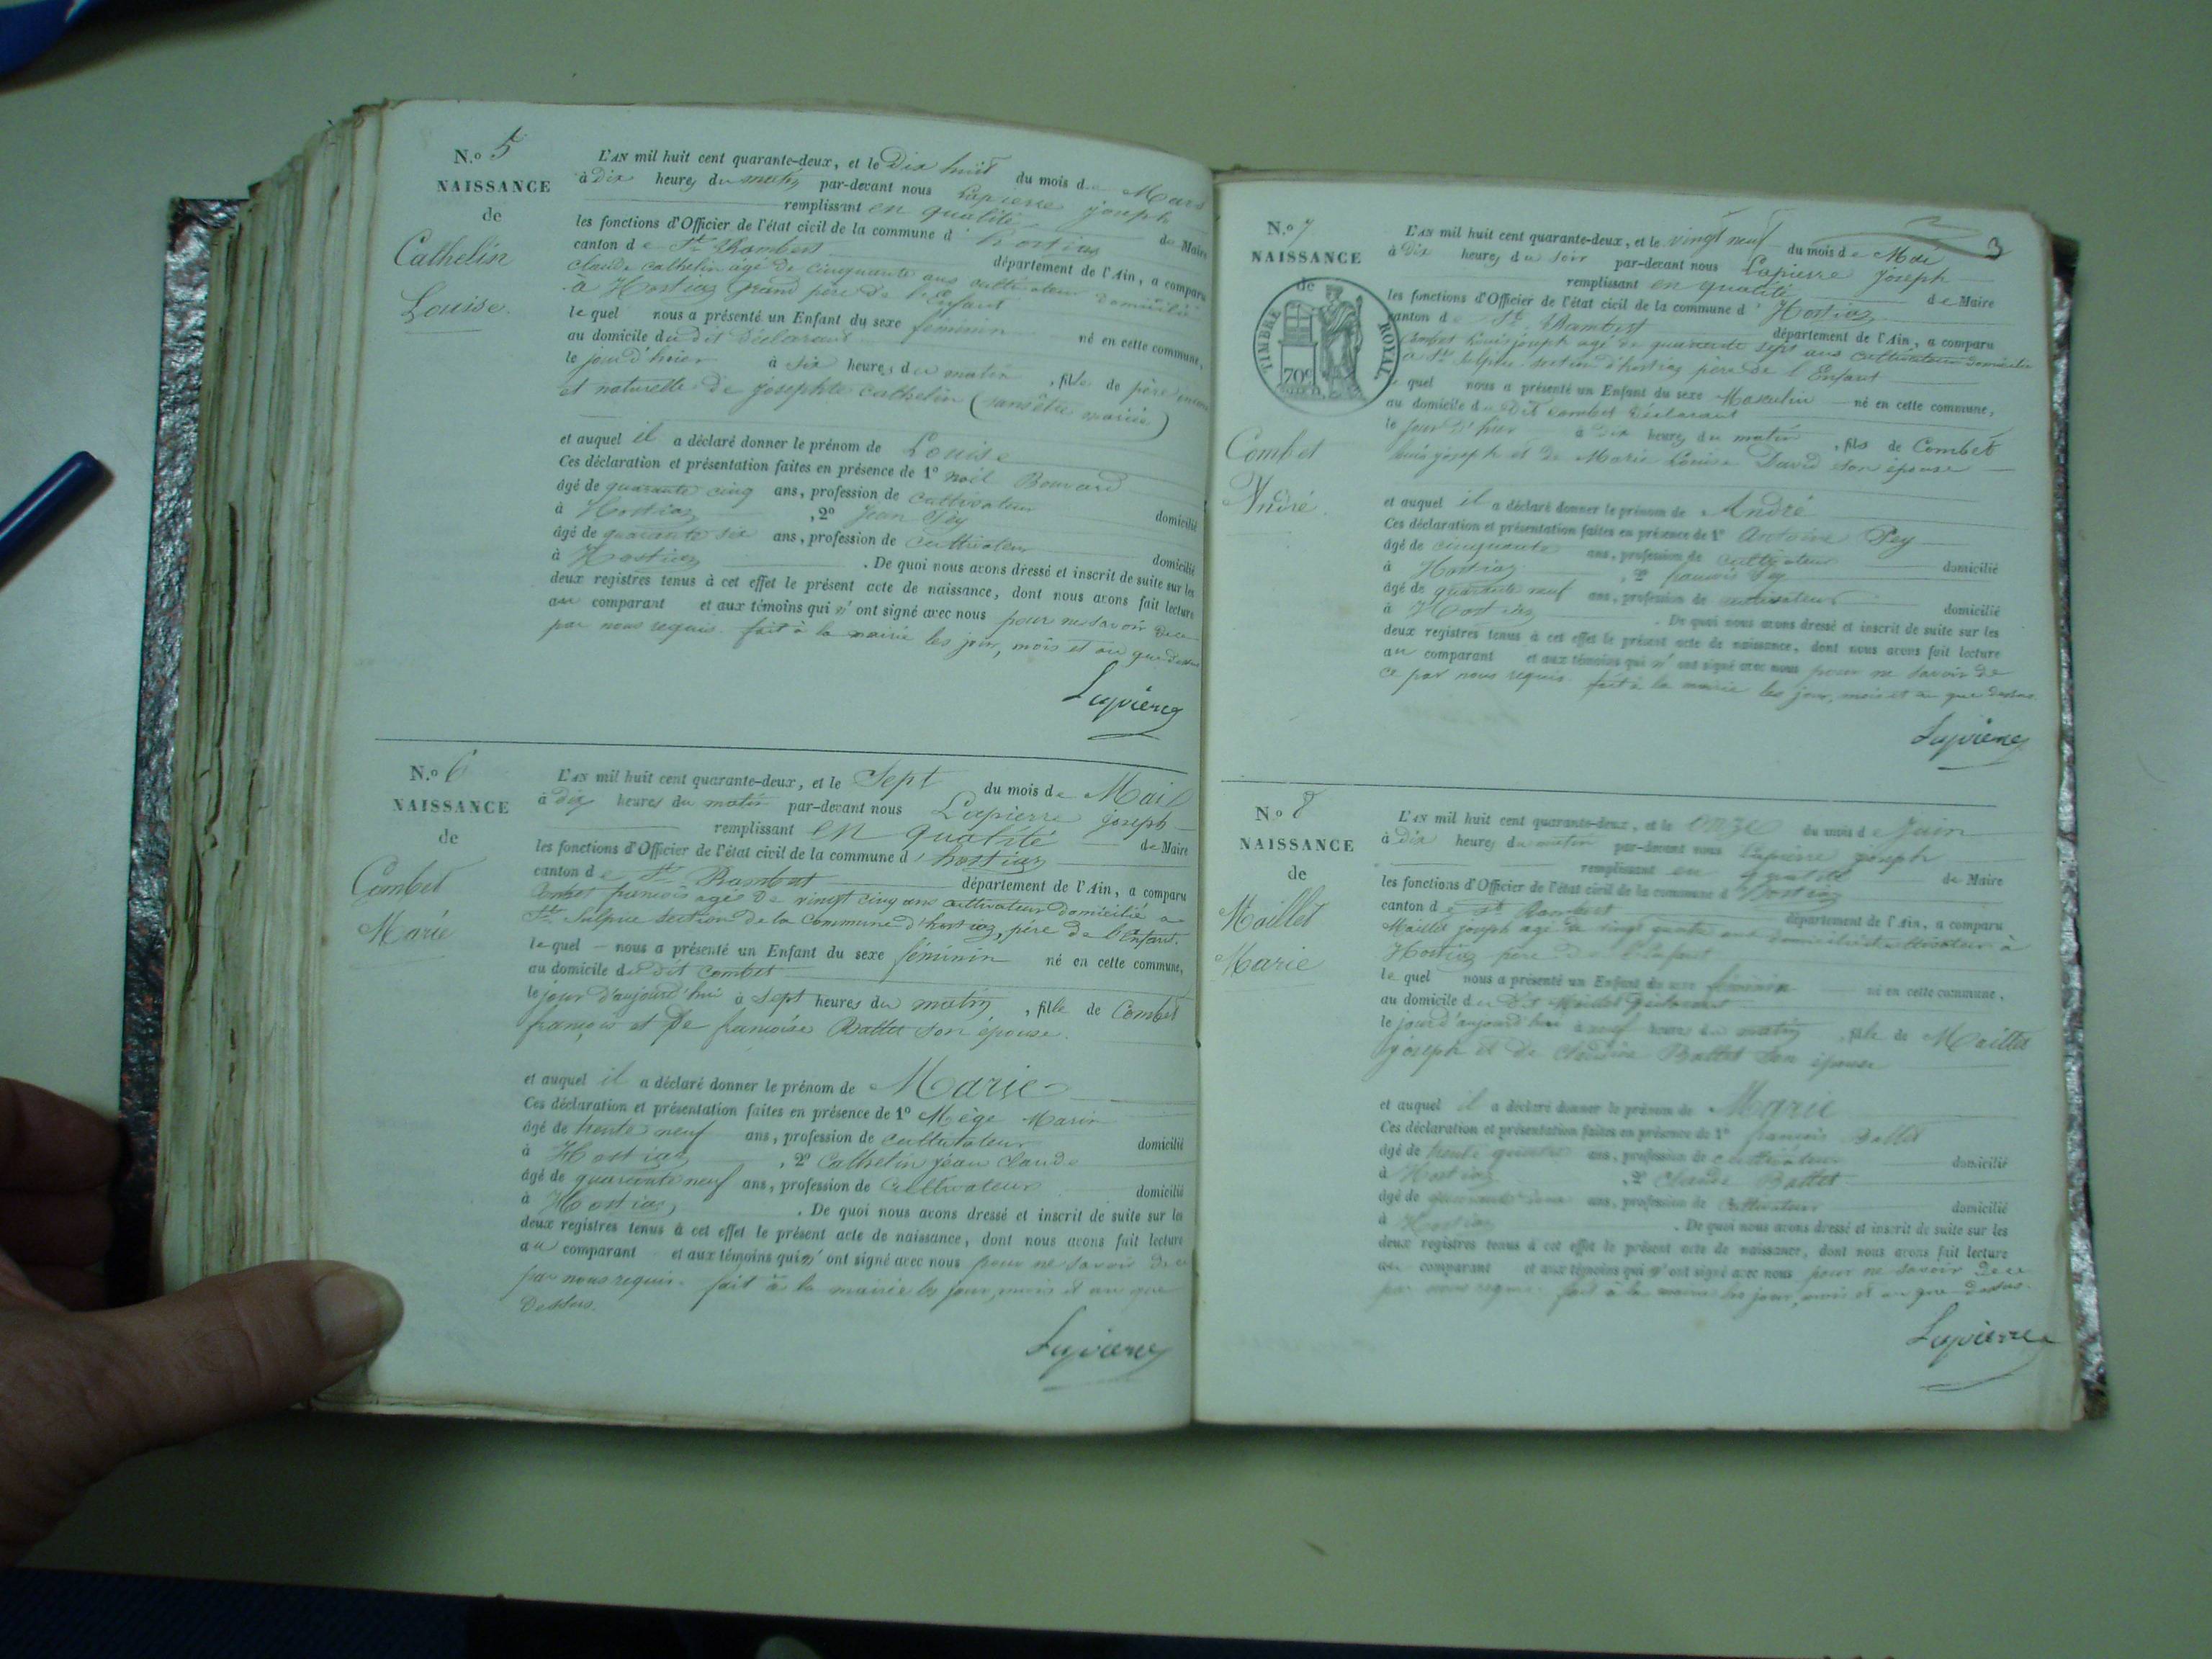 N.o 5
NAISSANCE
de
Cathelin
Louise.
L'AN mil huit cent quarante-deux, et le Dix huit du mois de Mars
à Dix heures du matin par-devant nous Lapierre joseph
remplissant en qualité de Maire
les fonctions d'Officier de l'état civil de la commune d' hostiaz
canton de St Rambert département de l'Ain, a comparu
claude cathelin âgé de cinquante ans cultivateur domicilié
à Hostiaz grand père de l'enfant
le quel nous a présenté un Enfant du sexe féminin né en cette commune,
au domicile du dit déclarant
le jour d'hier à dix heures du matin, fille de père inconnu
et naturelle de josephte cathelin (sans être mariée)
et auquel il a déclaré donner le prénom de Louise
Ces déclaration et présentation faites en présence de 1º noël Bouvard
âgé de quarante cinq ans, profession de cultivateur domicilié
à Hostiaz, 2º Jean Pey
âgé de quarante six ans, profession de cultivateur domicilié
à Hostiaz. De quoi nous avons dressé et inscrit de suite sur les
deux registres tenus à cet effet le présent acte de naissance, dont nous avons fait lecture
au comparant et aux témoins qui n'ont signé avec nous pour ne savoir de ce
par nous requis. fait à la mairie les jour, mois et an que dessus
Lapierre
N.o 6
NAISSANCE
de
Combet
Marie
L'AN mil huit cent quarante-deux, et le Sept du mois de Mai
à dix heures du matin par-devant nous Lapierre joseph
remplissant en qualité de Maire
les fonctions d'Officier de l'état civil de la commune d' hostiaz
canton de St Rambert département de l'Ain, a comparu
Combet françois âgé de vingt cinq ans cultivateur domicilié a
St Sulpice section de la commune d'hostiaz, père de l'Enfant.
le quel nous a présenté un Enfant du sexe féminin né en cette commune,
au domicile du dit Combet
le jour d'aujourd'hui à sept heures du matin, fille de Combet
françois et de françoise Battet son épouse.
et auquel il a déclaré donner le prénom de Marie
Ces déclaration et présentation faites en présence de 1º Miège Marin
âgé de trente neuf ans, profession de cultivateur domicilié
à Hostiaz, 2º Cathelin jean claude
âgé de quarante neuf ans, profession de Cultivateur domicilié
à Hostiaz, . De quoi nous avons dressé et inscrit de suite sur les
deux registres tenus à cet effet le présent acte de naissance, dont nous avons fait lecture
au comparant et aux témoins qui n'ont signé avec nous pour ne savoir de ce
par nous requis. fait à la mairie les jour, mois et an que
dessus.
Lapierre
3
N.o 7
NAISSANCE
de
TIMBRE ROYAL
70c
Combet
André.
L'AN mil huit cent quarante-deux, et le vingt neuf du mois de Mai
à Dix heures du soir par-devant nous Lapierre joseph
remplissant en qualité de Maire
les fonctions d'Officier de l'état civil de la commune d' Hostiaz
canton de St Rambert département de l'Ain, a comparu
Combet Louis joseph âgé de quarante sept ans cultivateur domicilié
à St Sulpice section d'hostiaz père de l'Enfant
le quel nous a présenté un Enfant du sexe Masculin né en cette commune,
au domicile du Dit Combet déclarant
le jour d'hier à dix heures du matin, fils de Combet
Louis joseph et de Marie Louise David son épouse
et auquel il a déclaré donner le prénom de André
Ces déclaration et présentation faites en présence de 1º Antoine Pey
âgé de cinquante ans, profession de cultivateur domicilié
à Hostiaz, 2º françois Pey
âgé de quarante neuf ans, profession de cultivateur domicilié
à Hostiaz. De quoi nous avons dressé et inscrit de suite sur les
deux registres tenus à cet effet le présent acte de naissance, dont nous avons fait lecture
au comparant et aux témoins qui n'ont signé avec nous pour ne savoir de
ce par nous requis fait à la mairie les jour, mois et an que dessus.
Lapierre
N.o 8
NAISSANCE
de
Maillet
Marie
L'AN mil huit cent quarante-deux, et le onze du mois de Juin
à dix heures du matin par-devant nous Lapierre joseph
remplissant en qualité de Maire
les fonctions d'Officier de l'état civil de la commune d' Hostiaz
canton de St Rambert département de l'Ain, a comparu
Maillet joseph âgé de vingt quatre ans domicilié cultivateur à
Hostiaz père de l'Enfant
le quel nous a présenté un Enfant du sexe féminin né en cette commune,
au domicile du dit Maillet déclarant
le jour d'aujourd'hui à neuf heures du matin, fille de Maillet
joseph et de Claudine Battet son épouse
et auquel il a déclaré donner le prénom de Marie
Ces déclaration et présentation faites en présence de 1º françois Battet
âgé de trente ans, profession de cultivateur domicilié
à Hostiaz, 2º Claude Battet
âgé de quarante ans, profession de Cultivateur domicilié
à Hostiaz. De quoi nous avons dressé et inscrit de suite sur les
deux registres tenus à cet effet le présent acte de naissance, dont nous avons fait lecture
au comparant et aux témoins qui n'ont signé avec nous pour ne savoir de ce
par nous requis. fait à la mairie les jour, mois et an que dessus.
Lapierre